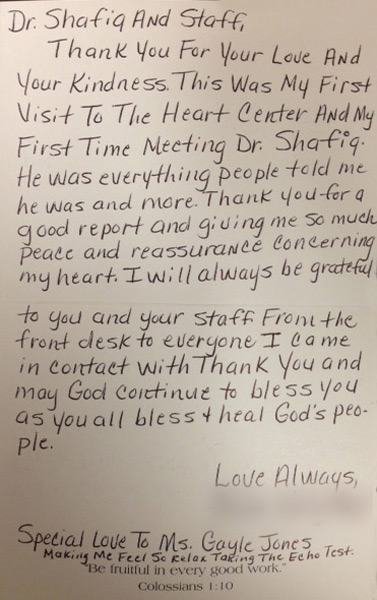 Dr. Shafiq And Staff,
Thank You For Your Love And
Your Kindness. This Was My First
Visit To The Heart Center And My
First Time Meeting Dr. Shafiq.
He was everything people told me
he was and more. Thank you for a
good report and giving me so much
peace and reassurance concerning
my heart. I will always be grateful
to you and your staff From the
front desk to everyone I came
in contact with Thank You and
may God continue to bless you
as you all bless + heal God's peo-
ple.
Love Always,
Special Love To Ms. Gayle Jones
Making Me Feel So Relax Taking The Echo Test.
"Be fruitful in every good work."
Colossians 1:10